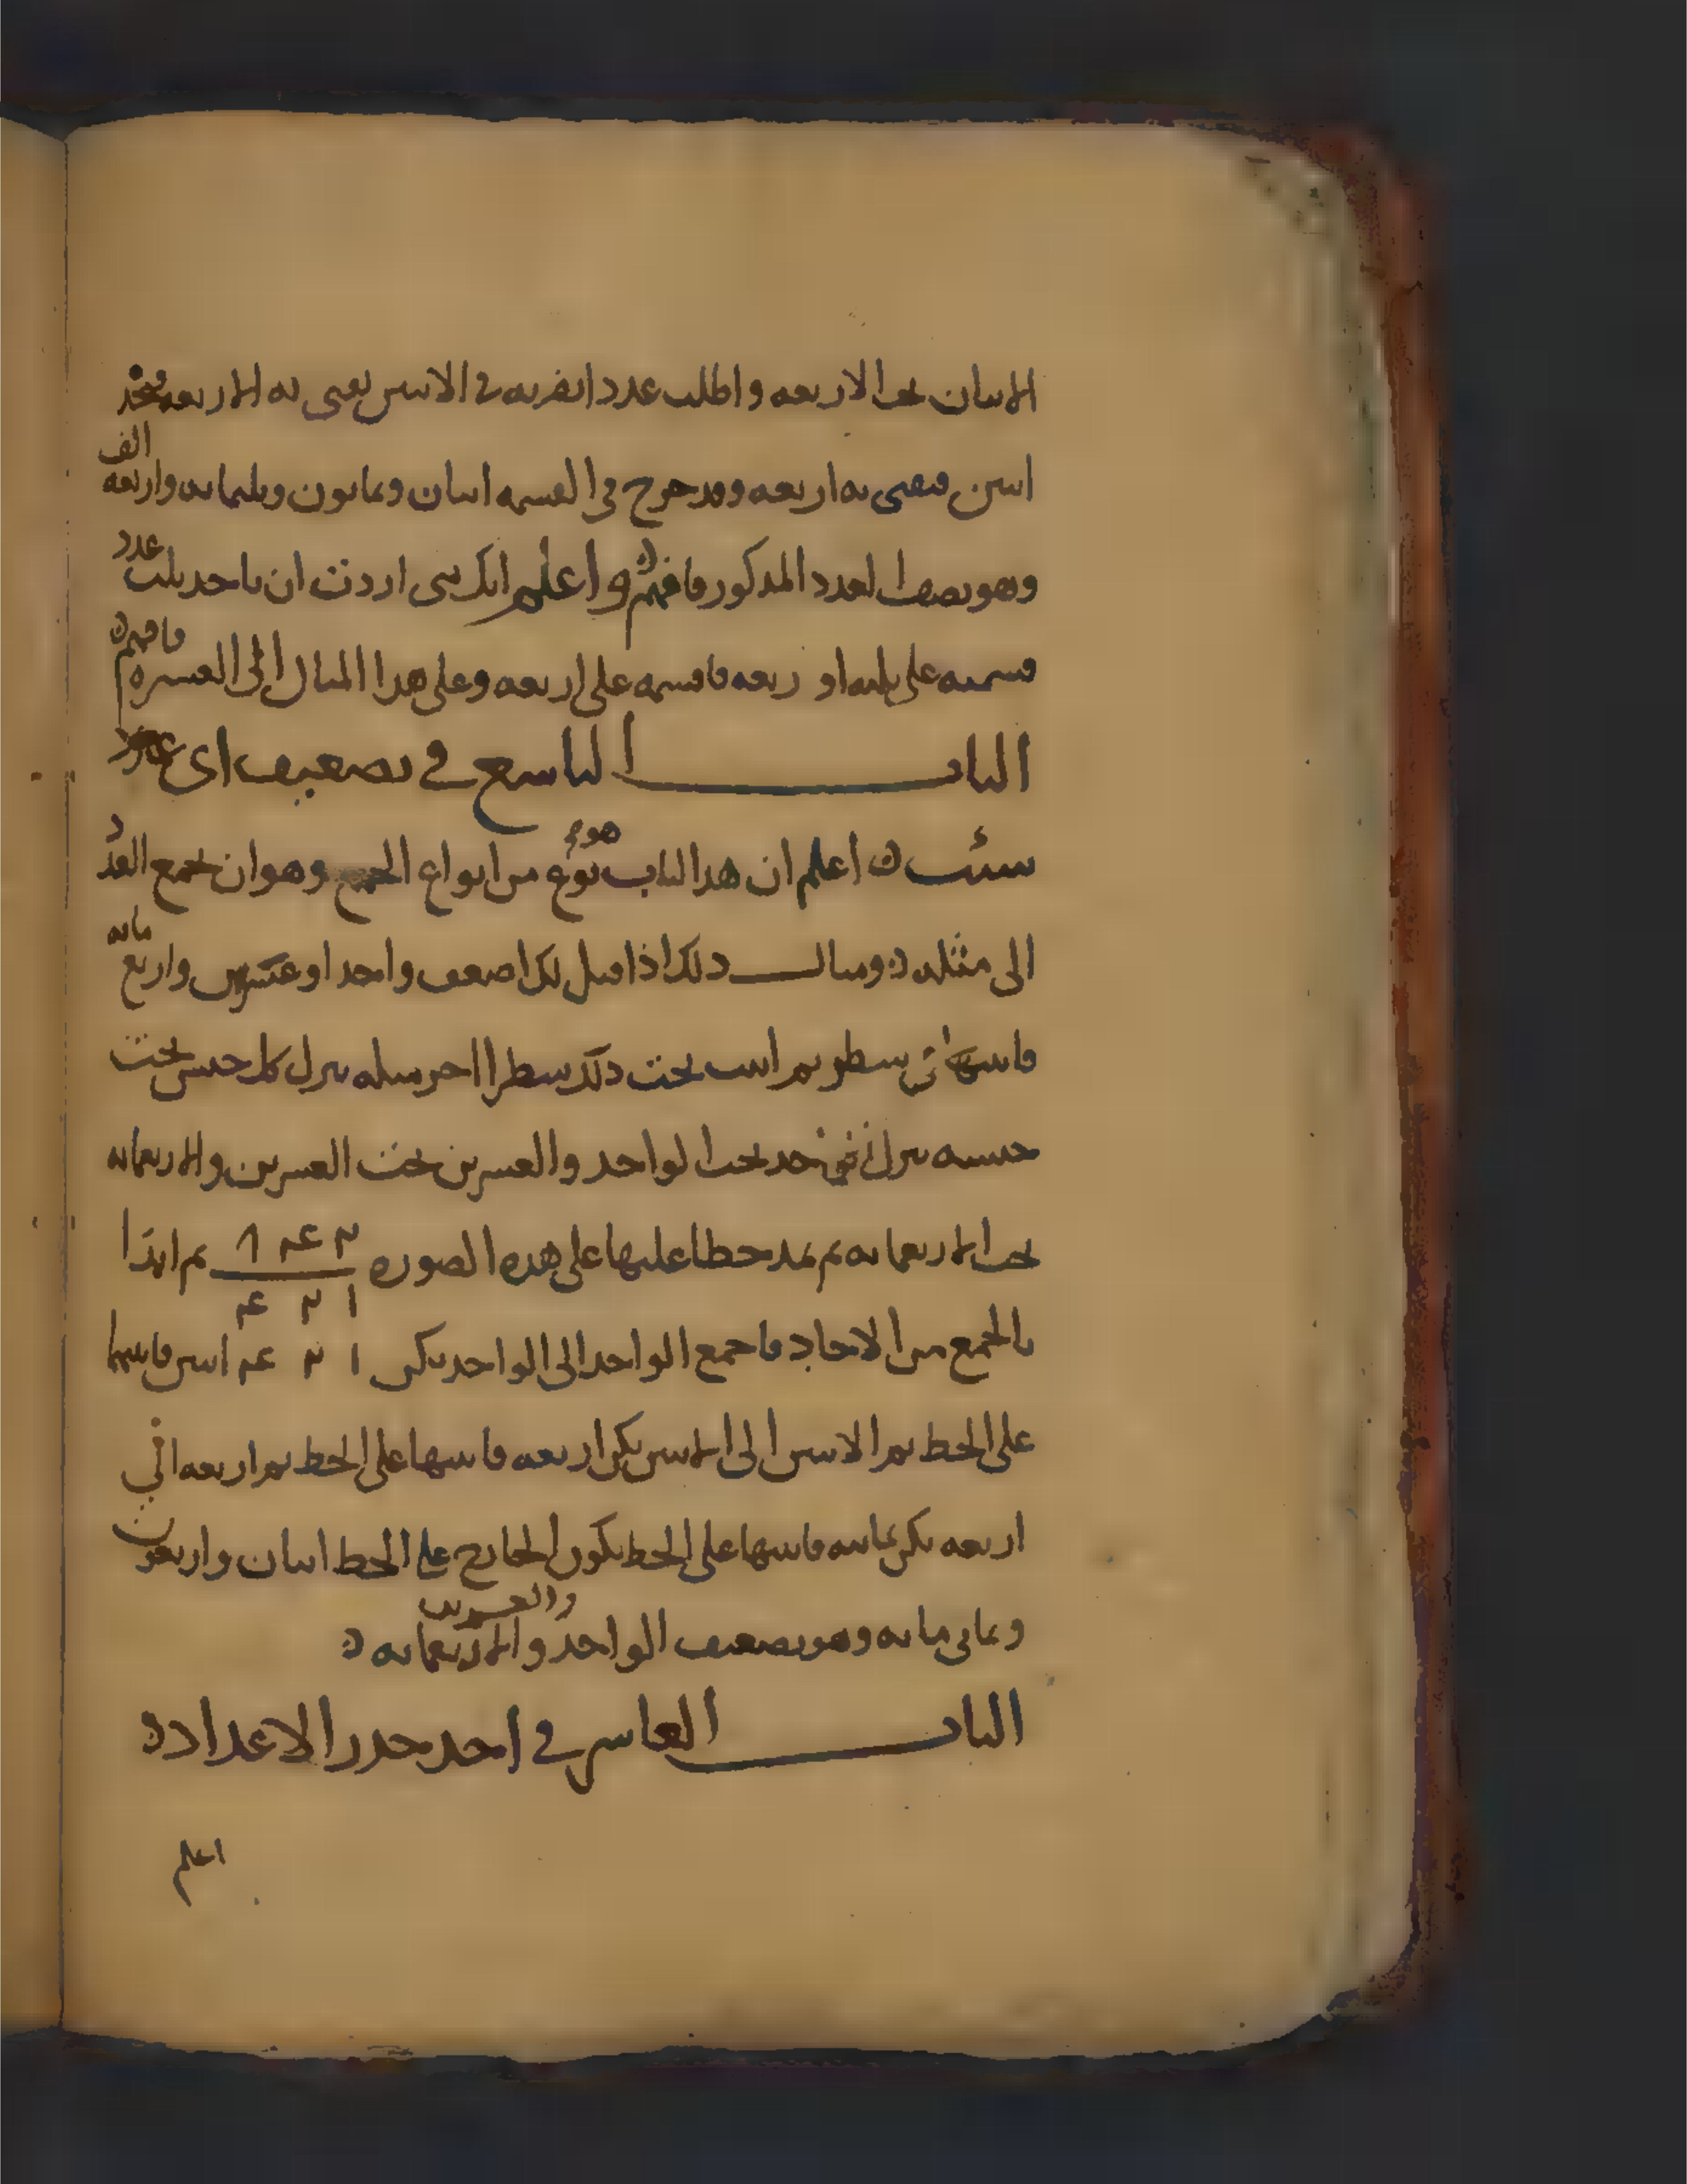 الاثنان تحت الاربعه واطلب عددا تضربه في الاثنين يفنى به الاربعه تجد
اثنين فيفنى به اربعه وقد خرج في القسمه اثنان وثمانون وثلثمائه واربعه الف
وهو نصف العدد المذكور فافهم واعلم انك متى اردت ان تاخذ ثلث عدد
قسمته على ثلثه او ربعه فاقسمه على اربعه وعلى هذا المثال الى العشره فافهم
الباب التاسع في تضعيف اى عدد
شئت اعلم ان هذا الباب هو نوع من انواع الجمع وهو ان تجمع العدد
الى مثله ومثال ذلك اذا قيل لك اضعف واحد او عشرين واربع مائه
فاثبتها في سطر ثم اثبت تحت ذلك سطرا اخر مثله تنزل كل جنس تحت
جنسه تنزل تحت الواحد والعشرين تحت العشرين والاربعمائه
تحت الاربعمائه ثم تمد خطا عليها على هذه الصوره ٢ ٤ ٨ ثم ابدا
١ ٢ ٤
بالجمع من الاحاد فاجمع الواحد الى الواحد يكن ١ ٢ ٤ اثنين فاثبتها
على الخط ثم الاثنين الى الاثنين يكن اربعه فاثبتها على الخط ثم اربعه الى
اربعه يكن ثمانيه فاثبتها على الخط يكون الخارج على الخط اثنان واربعون
وثماني مائه وهو تضعيف الواحد والعشرين والاربعمائه
الباب العاشر في اخذ جذر الاعداد
اعلم